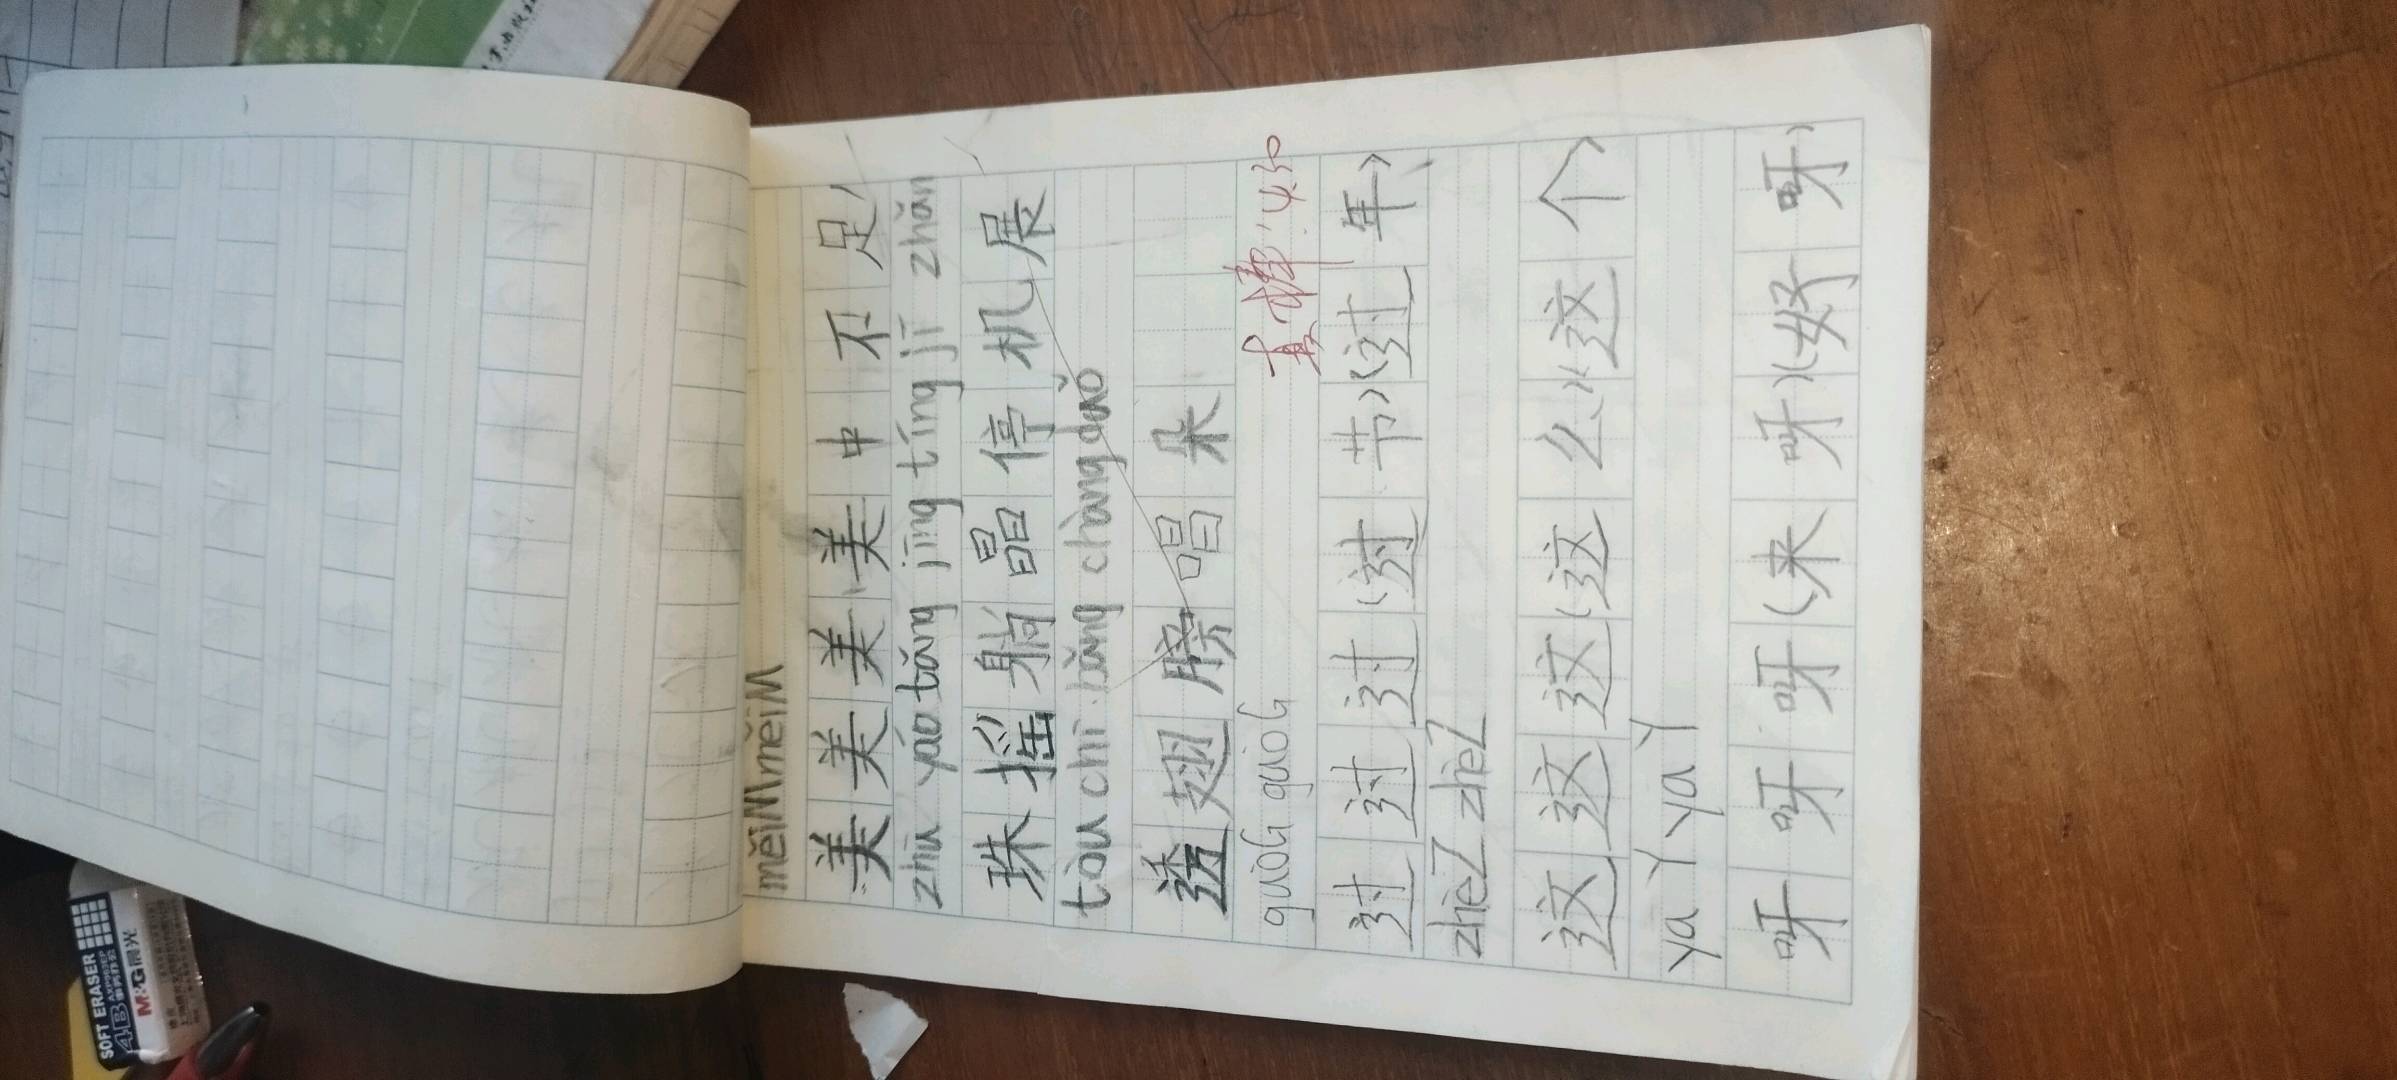 měiMměiM
美美美美中不足
zhū yáo tǎng jīng tíng jī zhǎn
珠摇躺晶停机展
tòu chì bǎng chàng duǒ
透翅膀唱朵
guòG guòG
过过过(过节)(过年)
zhèZ zhèZ
这这这(这么)(这个)
ya Y ya Y
呀呀呀(来呀)(好呀)
SOFT ERASER
4B
M&G晨光